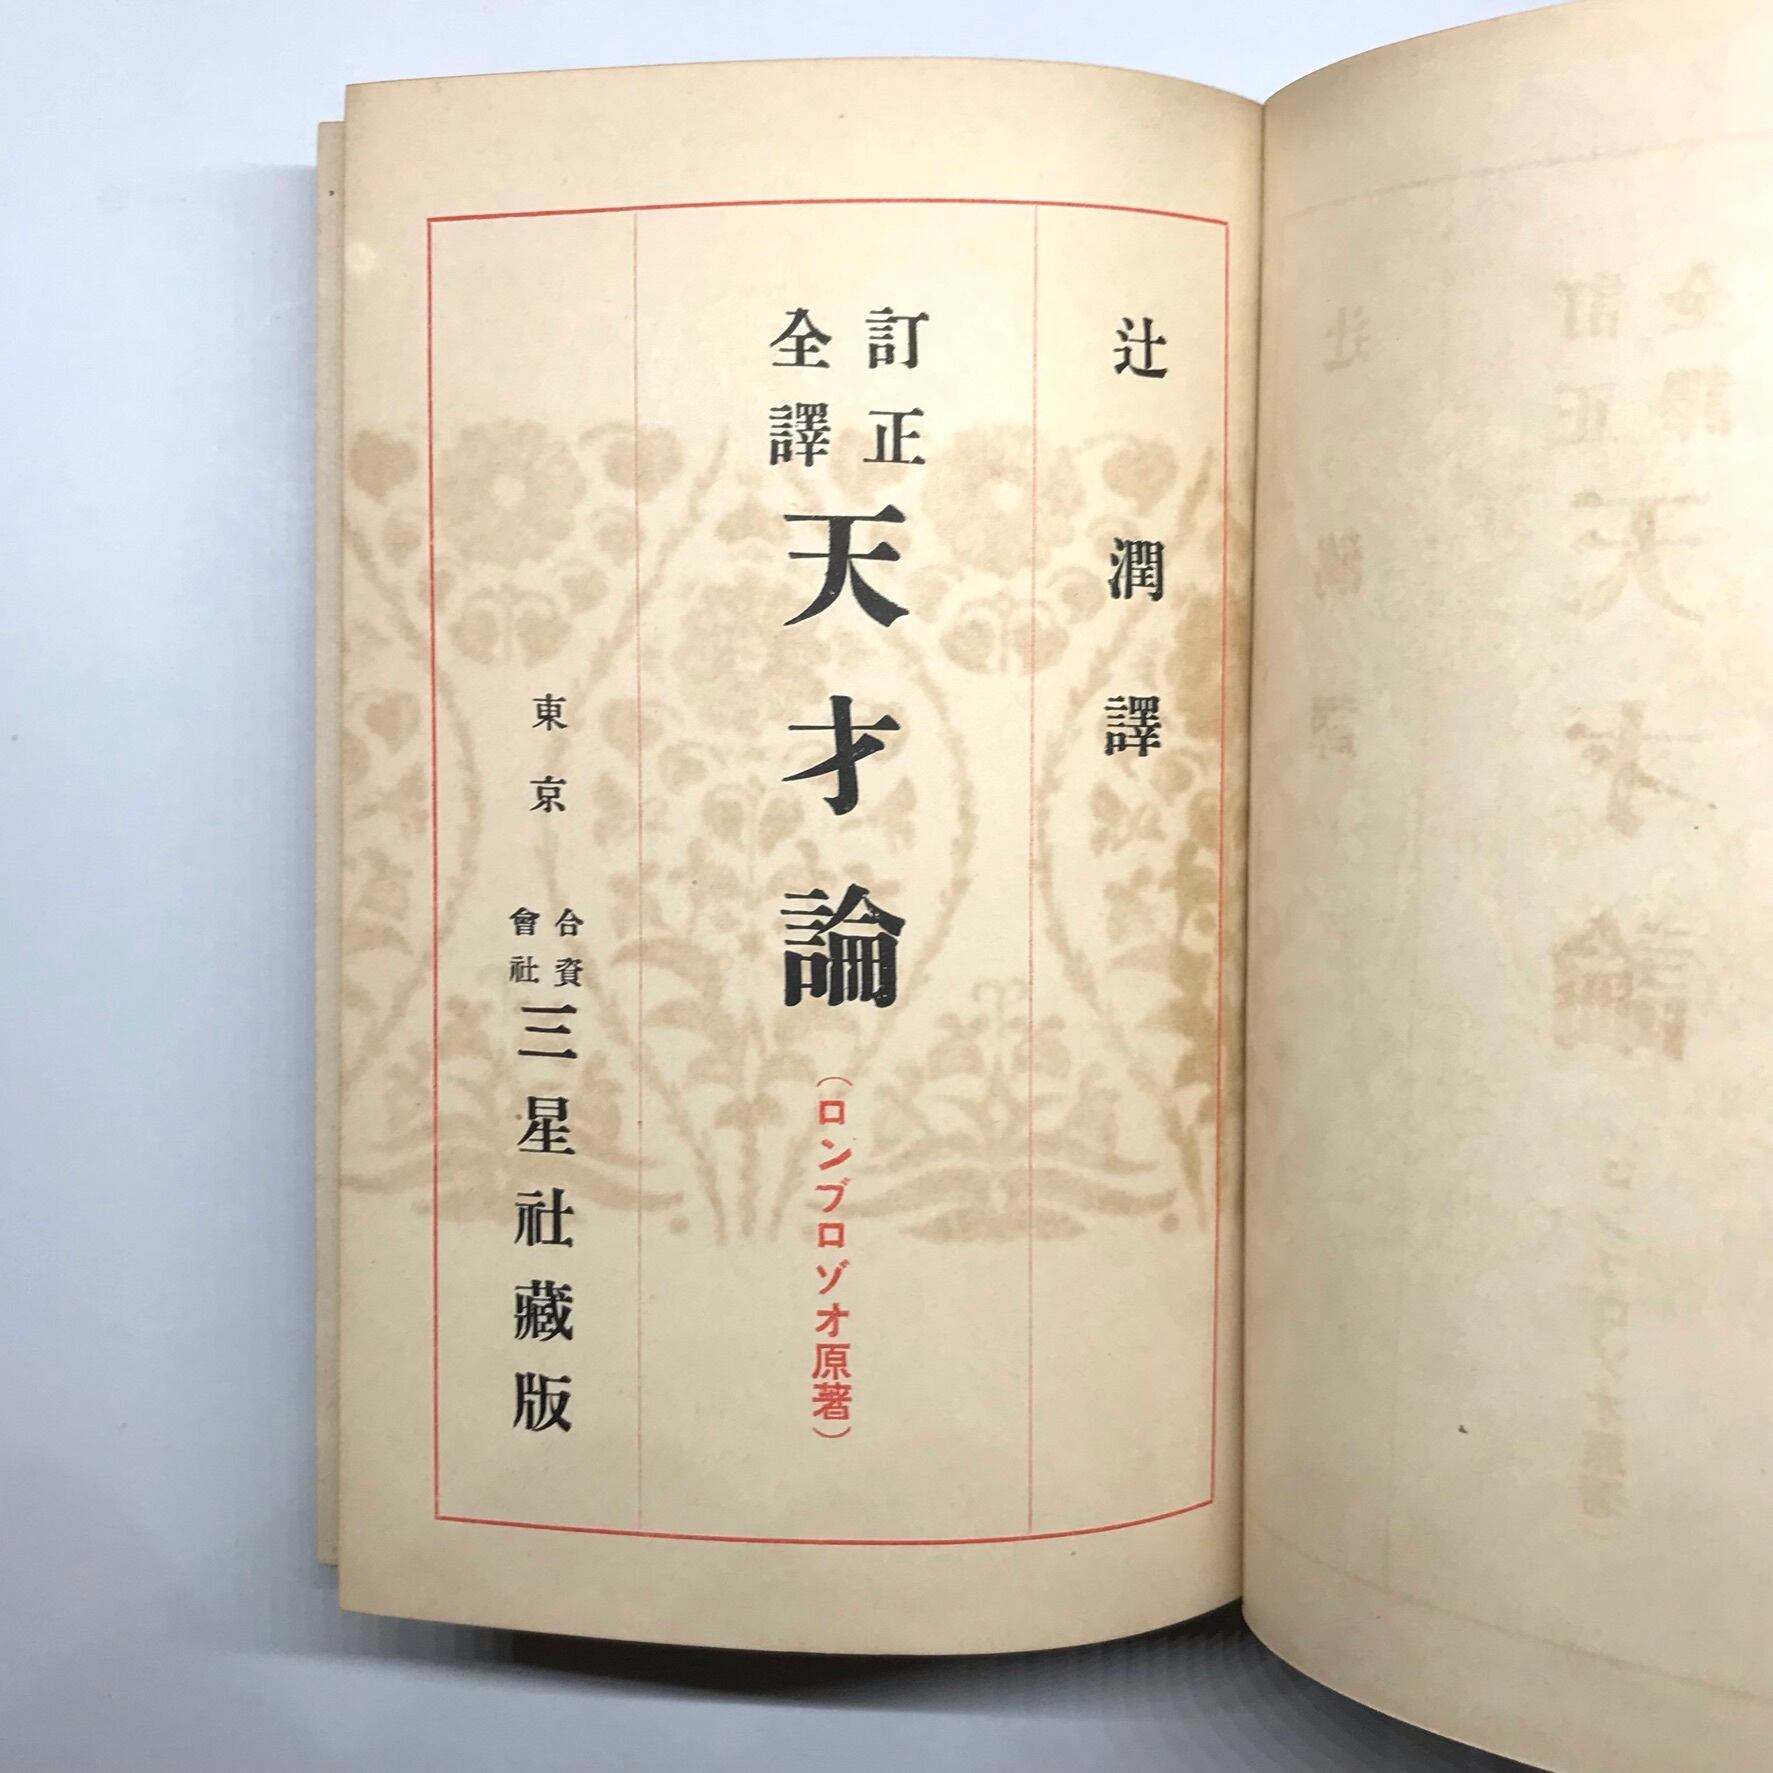 辻潤譯
訂正
全譯
天才論
(ロンブロゾオ原著)
東京
合資
會社
三星社藏版